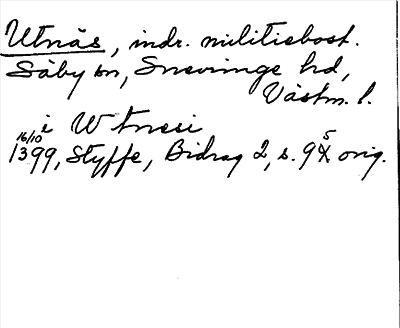 Utnäs, indr. militiebost.
Säby sn, Snevringe hd,
Västm. l.
i Wtnesi
16/10 1399, Styffe, Bidrag 2, s. 95 orig.